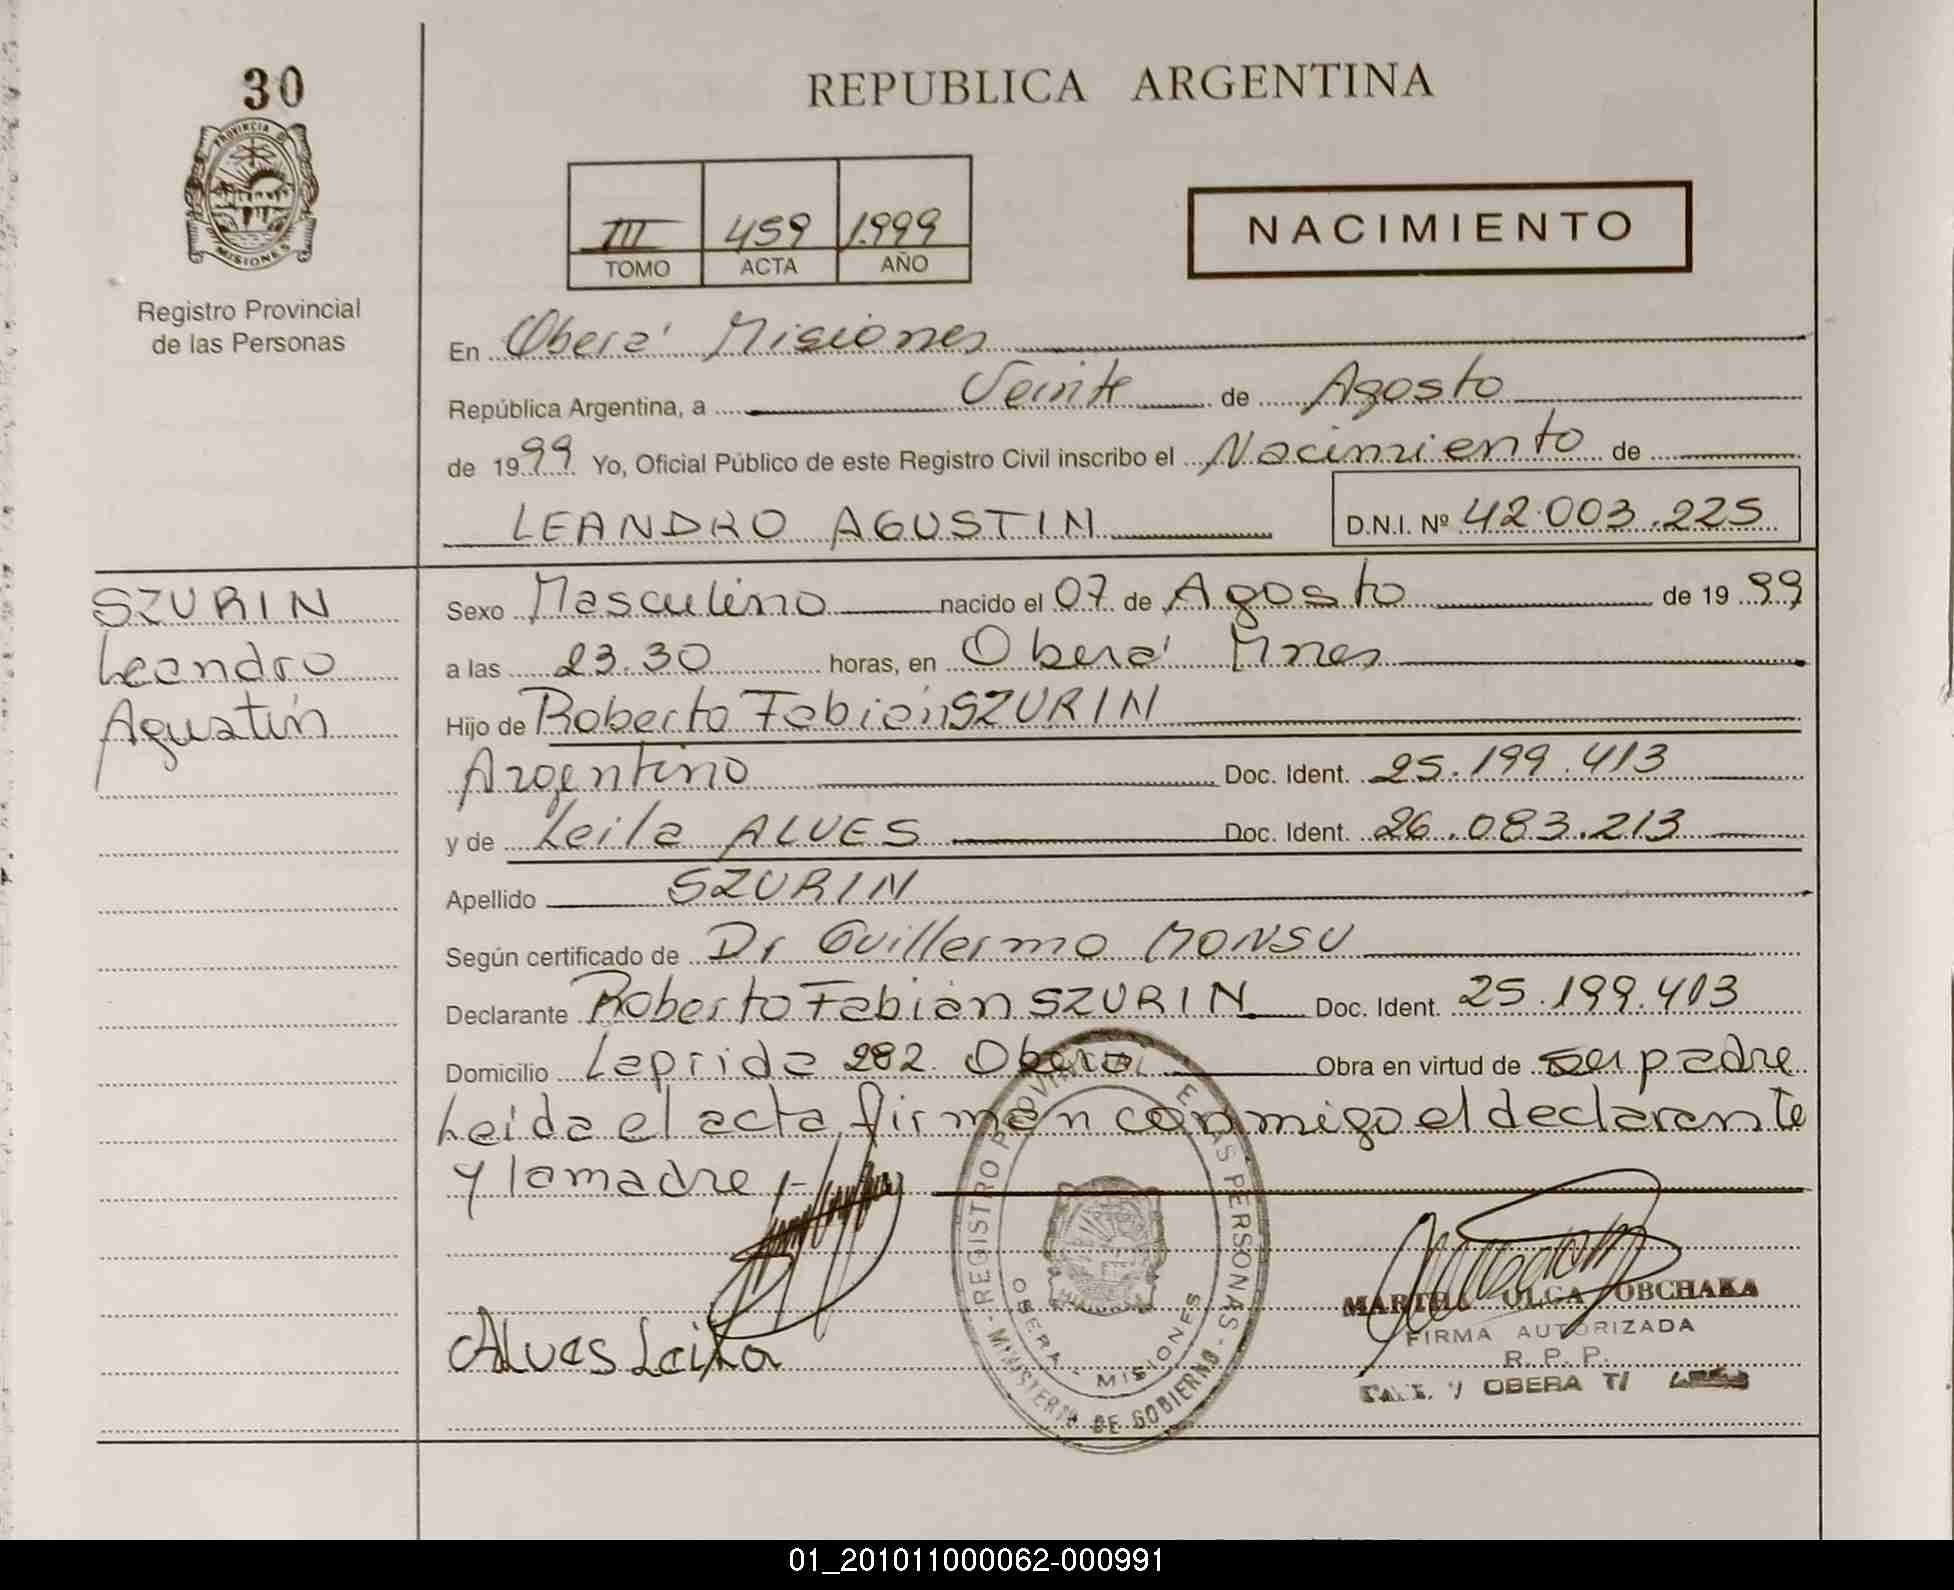 30
PROVINCIA DE
MISIONES
Registro Provincial
de las Personas
REPUBLICA ARGENTINA
III 459 1999
TOMO ACTA AÑO
NACIMIENTO
En Oberá Misiones
República Argentina, a Veinte de Agosto
de 1999 Yo, Oficial Público de este Registro Civil inscribo el Nacimiento de
LEANDRO AGUSTIN D.N.I. Nº 42.003.225
SZURIN
Leandro
Agustín
Sexo Masculino nacido el 07 de Agosto de 1999
a las 23.30 horas, en Oberá Mnes
Hijo de Roberto Fabián SZURIN
Argentino Doc. Ident. 25.199.413
y de Leila ALVES Doc. Ident. 26.083.213
Apellido SZURIN
Según certificado de Dr Guillermo MONSU
Declarante Roberto Fabián SZURIN Doc. Ident. 25.199.413
Domicilio Laprida 282 Oberá Obra en virtud de ser padre
Leida el acta, firman conmigo el declarante
y la madre.-
Alves Leila
REGISTRO PROVINCIAL DE LAS PERSONAS
OBERA - MISIONES
MINISTERIO DE GOBIERNO
MARTHA OLGA OBCHAKA
FIRMA AUTORIZADA
R. P. P.
OBERA
01_201011000062-000991